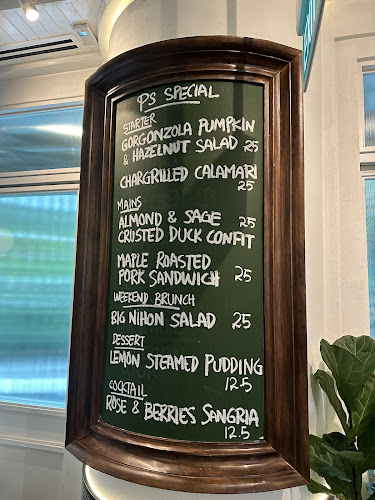 PS SPECIAL
STARTER
GORGONZOLA PUMPKIN
& HAZELNUT SALAD 25
CHARGRILLED CALAMARI
25
MAINS
ALMOND & SAGE 25
CRUSTED DUCK CONFIT
MAPLE ROASTED
PORK SANDWICH 25
WEEKEND BRUNCH
BIG NIHON SALAD 25
DESSERT
LEMON STEAMED PUDDING
12.5
COCKTAIL
ROSE & BERRIES SANGRIA
12.5